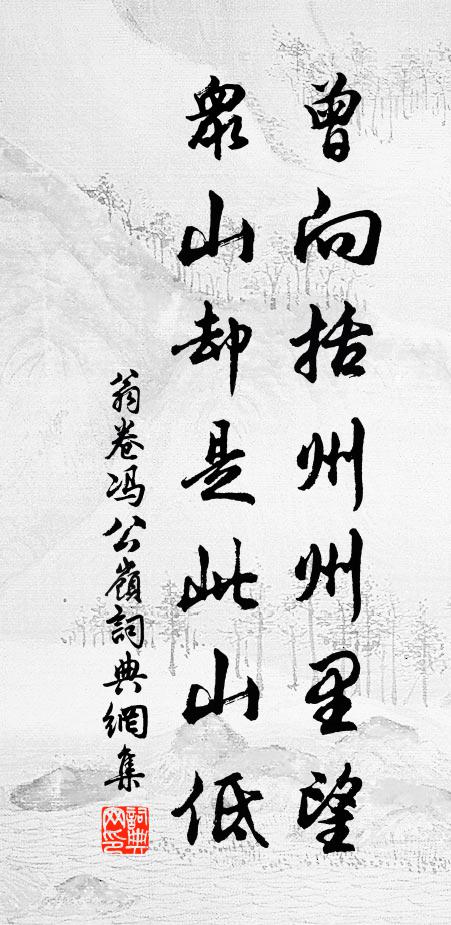 曾向括州州里望
衆山却是此山低
翁卷冯公嶺詞典網集
詞典网印